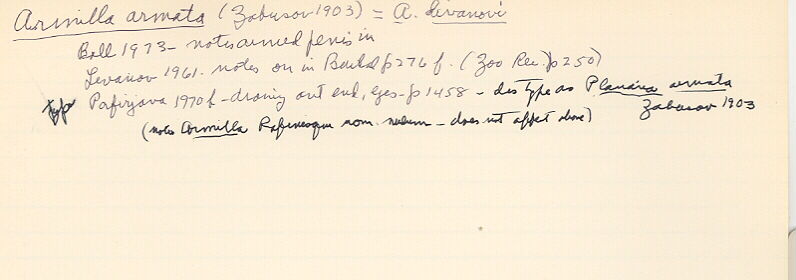 Armilla armata (Zabusov 1903) = A. livanovi
Ball 1973 - notes armed penis in
Levanov 1961 - notes on in Baikal p 276 f. (Zoo Rec. p 250)
type Porfirjeva 1970 f - drawing ant end, eyes - p 1458 - des type as Planaria armata
Zabusov 1903
(notes Armilla Rafinesque nom. nudum - does not affect above)